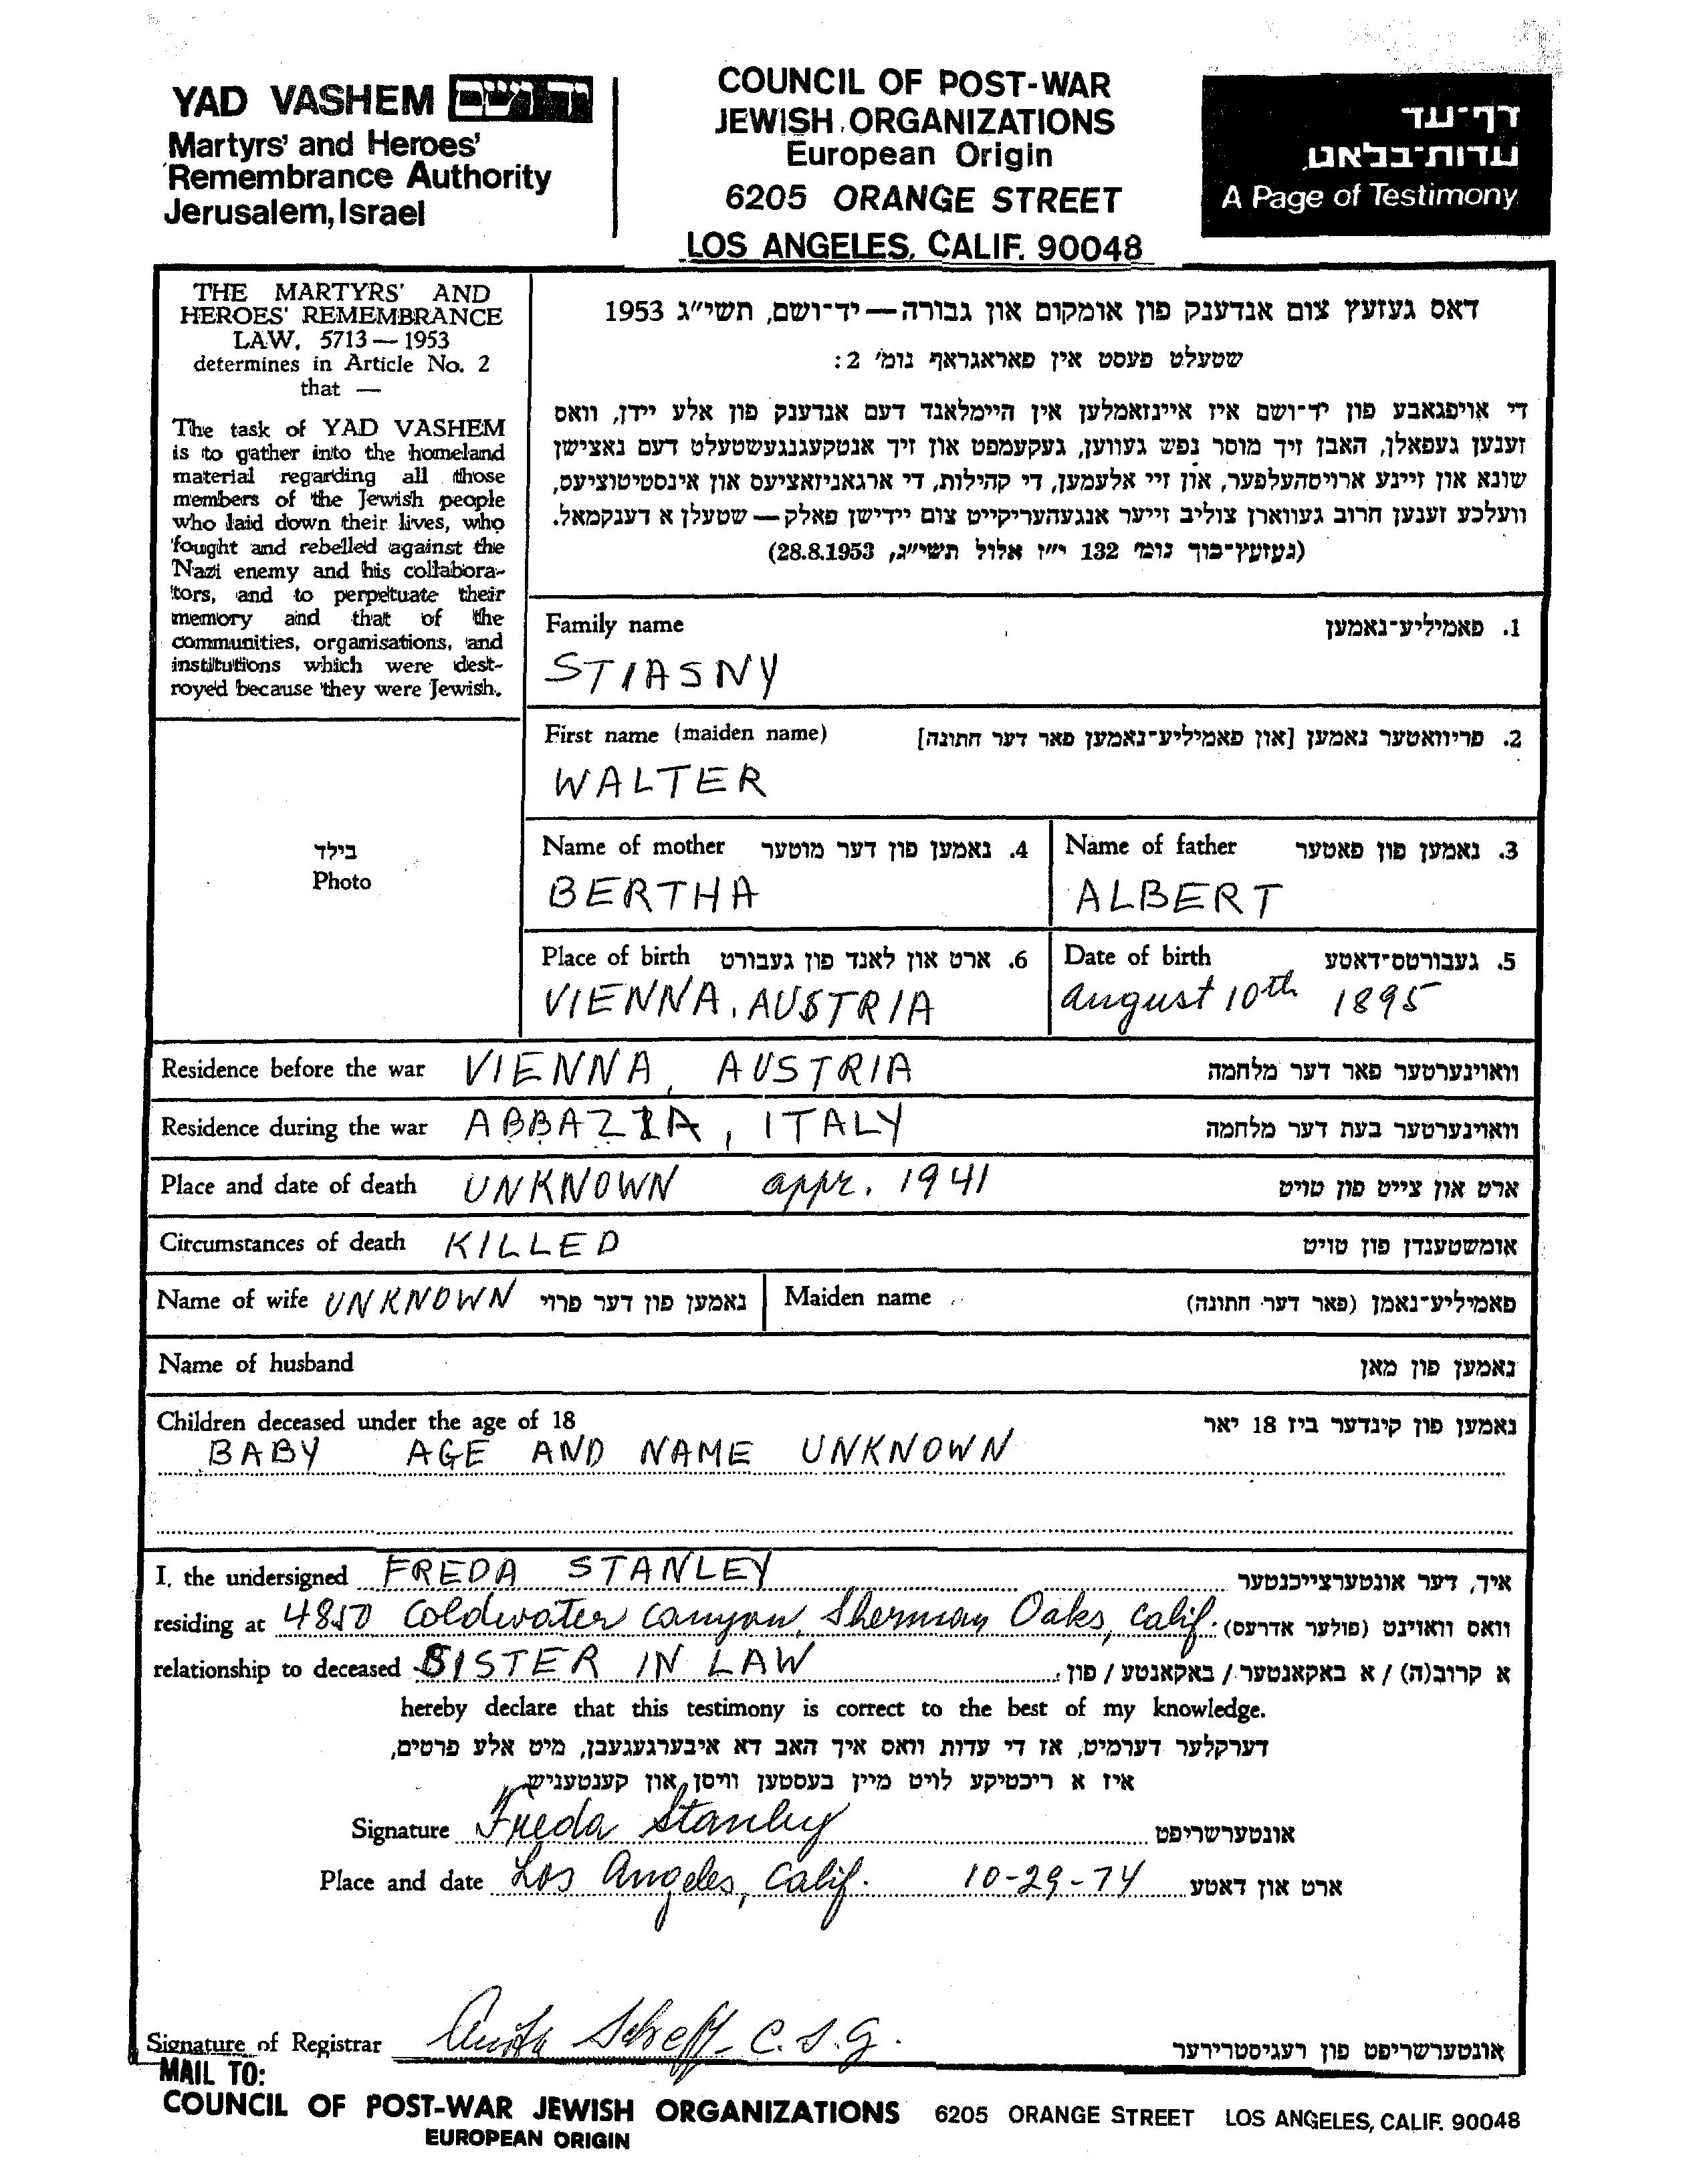 YAD VASHEM יד ושם
Martyrs' and Heroes'
Remembrance Authority
Jerusalem, Israel
COUNCIL OF POST-WAR
JEWISH ORGANIZATIONS
European Origin
6205 ORANGE STREET
LOS ANGELES, CALIF. 90048
דף-עד
עדות-בלאט
A Page of Testimony
THE MARTYRS' AND
HEROES' REMEMBRANCE
LAW, 5713—1953
determines in Article No. 2
that —
The task of YAD VASHEM
is to gather into the homeland
material regarding all those
members of the Jewish people
who laid down their lives, who
fought and rebelled against the
Nazi enemy and his collabora-
tors, and to perpetuate their
memory and that of the
communities, organisations, and
institutions which were dest-
royed because they were Jewish.
דאס געזעץ צום אנדענק פון אומקום און גבורה — יד-ושם, תשי"ג 1953
שטעלט פעסט אין פאראגראף נומ' 2:
די אויפגאבע פון יד-ושם איז איינזאמלען אין היימלאנד דעם אנדענק פון אלע יידן, וואס
זענען געפאלן, האבן זיך מוסר נפש געווען, געקעמפט און זיך אנטקעגנגעשטעלט דעם נאצישן
שונא און זיינע ארויסהעלפער, און זיי אלעמען, די קהילות, די ארגאניזאציעס און אינסטיטוציעס,
וועלכע זענען חרוב געווארן צוליב זייער אנגעהעריקייט צום יידישן פאלק — שטעלן א דענקמאל.
(געזעץ-בוך נומ' 132 י"ז אלול תשי"ג, 28.8.1953)
Family name 1. פאמיליע-נאמען
STIASNY
First name (maiden name) 2. פריוואטער נאמען [און פאמיליע-נאמען פאר דער חתונה]
WALTER
בילד
Photo
Name of mother 4. נאמען פון דער מוטער Name of father 3. נאמען פון פאטער
BERTHA ALBERT
Place of birth 6. ארט און לאנד פון געבורט Date of birth 5. געבורטס-דאטע
VIENNA, AUSTRIA August 10th 1895
Residence before the war VIENNA, AUSTRIA וואוינערטער פאר דער מלחמה
Residence during the war ABBAZIA, ITALY וואוינערטער בעת דער מלחמה
Place and date of death UNKNOWN appr. 1941 ארט און צייט פון טויט
Circumstances of death KILLED אומשטענדן פון טויט
Name of wife UNKNOWN נאמען פון דער פרוי Maiden name פאמיליע-נאמן (פאר דער חתונה)
Name of husband נאמען פון מאן
Children deceased under the age of 18 נאמען פון קינדער ביז 18 יאר
BABY AGE AND NAME UNKNOWN
I, the undersigned FREDA STANLEY איך, דער אונטערצייכנטער
residing at 4850 Coldwater Canyon, Sherman Oaks, Calif. וואס וואוינט (פולער אדרעס)
relationship to deceased SISTER IN LAW א קרוב(ה) / א באקאנטער / באקאנטע / פון:
hereby declare that this testimony is correct to the best of my knowledge.
דערקלער דערמיט, אז די עדות וואס איך האב דא איבערגעגעבן, מיט אלע פרטים,
איז א ריכטיקע לויט מיין בעסטען וויסן און קענטעניש.
Signature Freda Stanley אונטערשריפט
Place and date Los Angeles, Calif. 10-29-74 ארט און דאטע
Signature of Registrar Anita Scheff C.S.G. אונטערשריפט פון רעגיסטרירער
MAIL TO:
COUNCIL OF POST-WAR JEWISH ORGANIZATIONS 6205 ORANGE STREET LOS ANGELES, CALIF. 90048
EUROPEAN ORIGIN